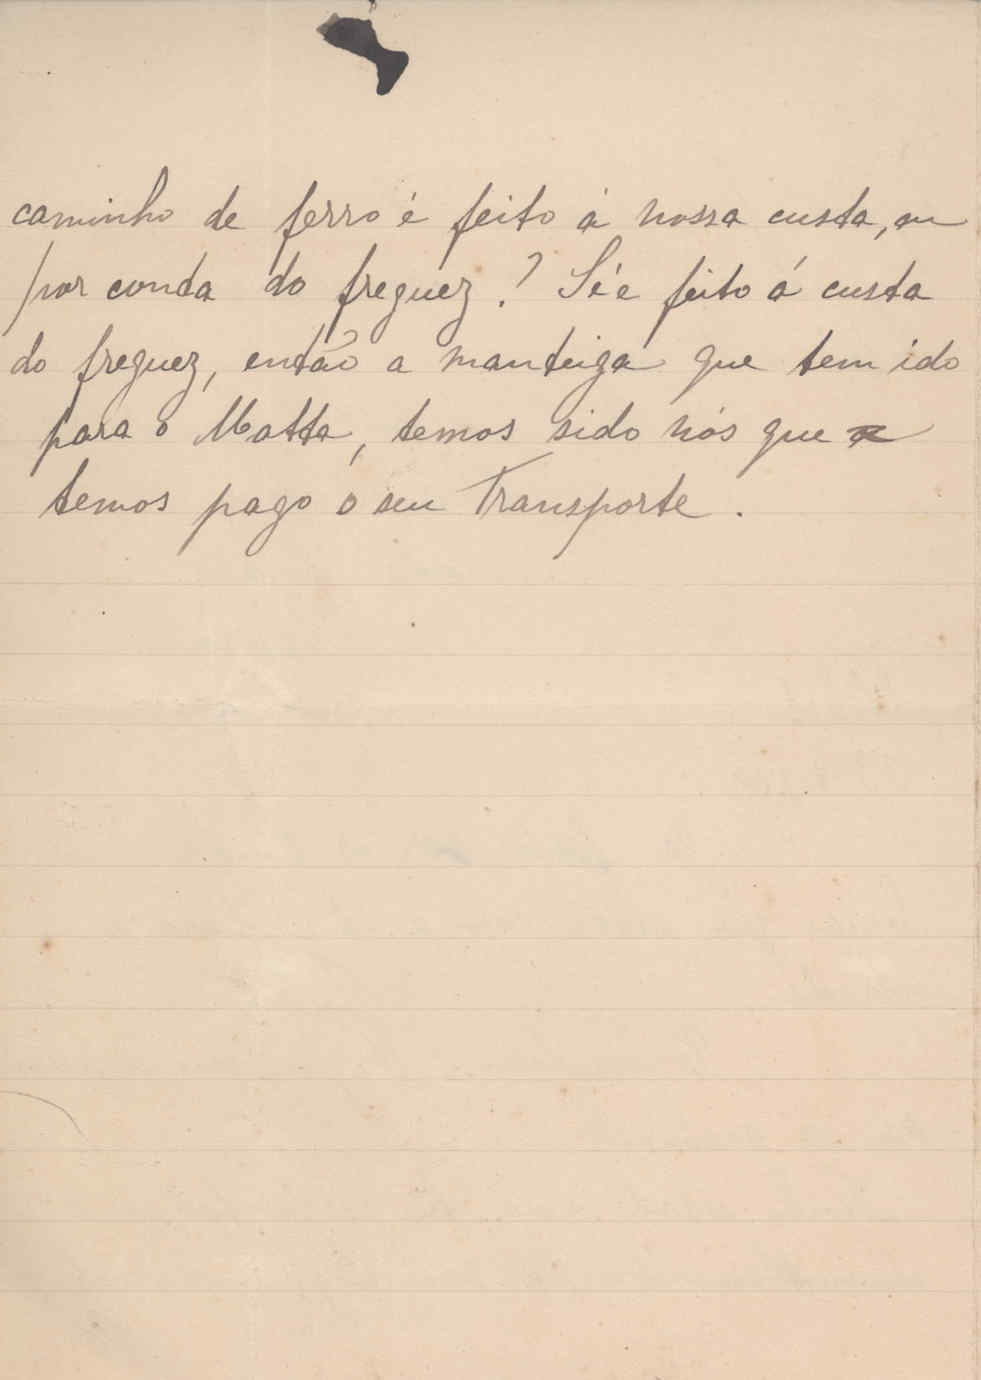 caminho de ferro é feito á nossa custa, ou
por conda do freguez? Sé e feito á custa
do freguez, então a manteiga que tem ido
para o Matta, temos sido nós que
temos pago o seu transporte.